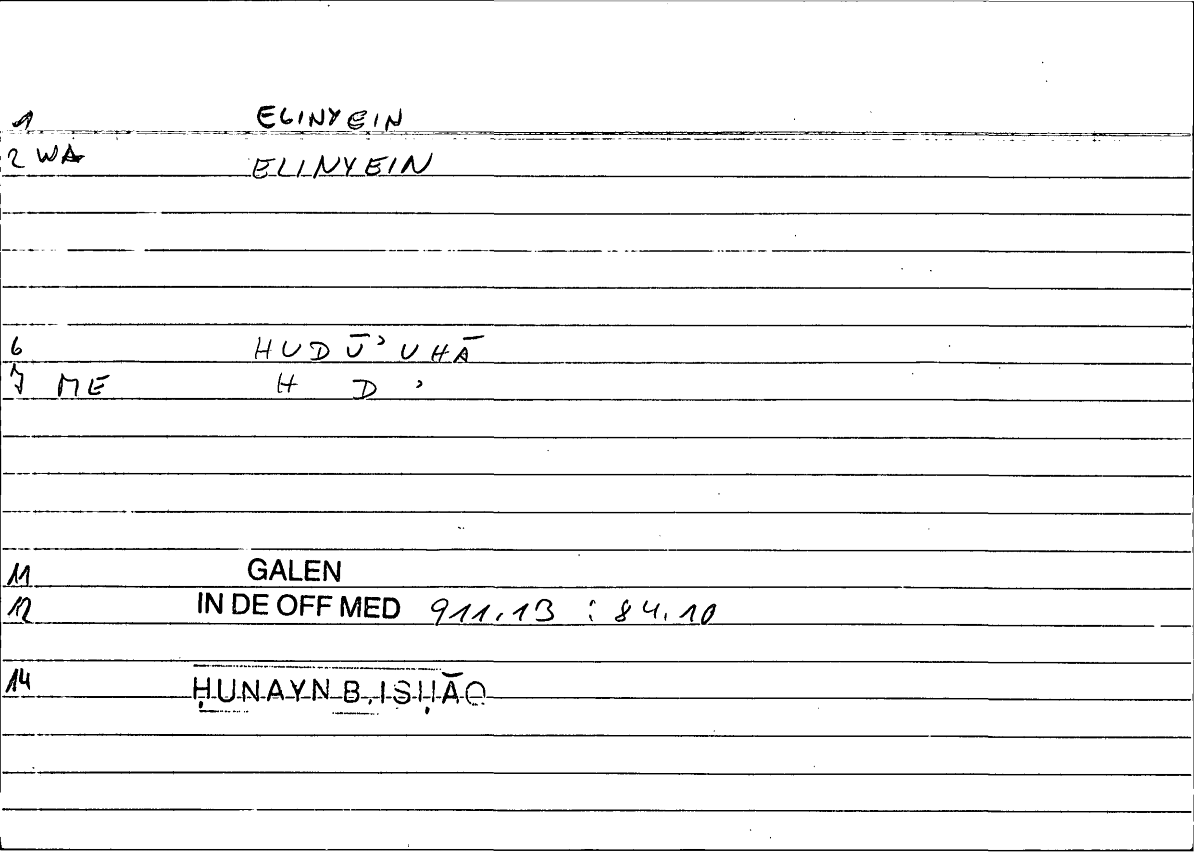 1 ELINYEIN
2 WA ELINYEIN
6 HUDŪ'UHĀ
7 ME H D '
11 GALEN
12 IN DE OFF MED 911.13 : 84.10
14 ḤUNAYN B. ISḤĀQ